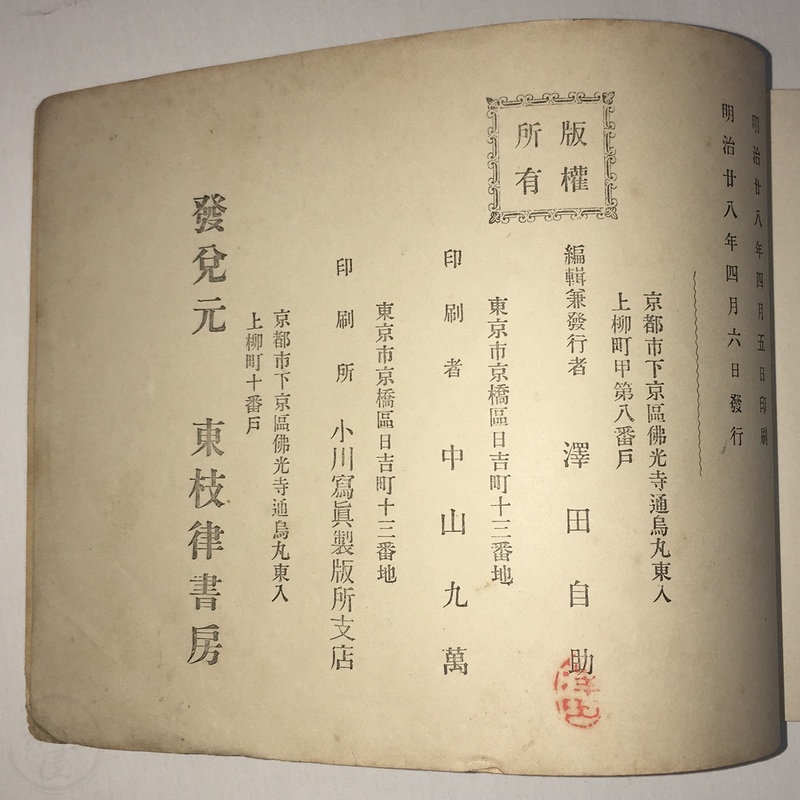 明治廿八年四月五日印刷
明治廿八年四月六日發行
版權
所有
京都市下京區佛光寺通烏丸東入
上柳町甲第八番戸
編輯兼發行者 澤田自助
東京市京橋區日吉町十三番地
印刷者 中山九萬
東京市京橋區日吉町十三番地
印刷所 小川寫眞製版所支店
京都市下京區佛光寺通烏丸東入
上柳町十番戸
發兌元 東枝律書房